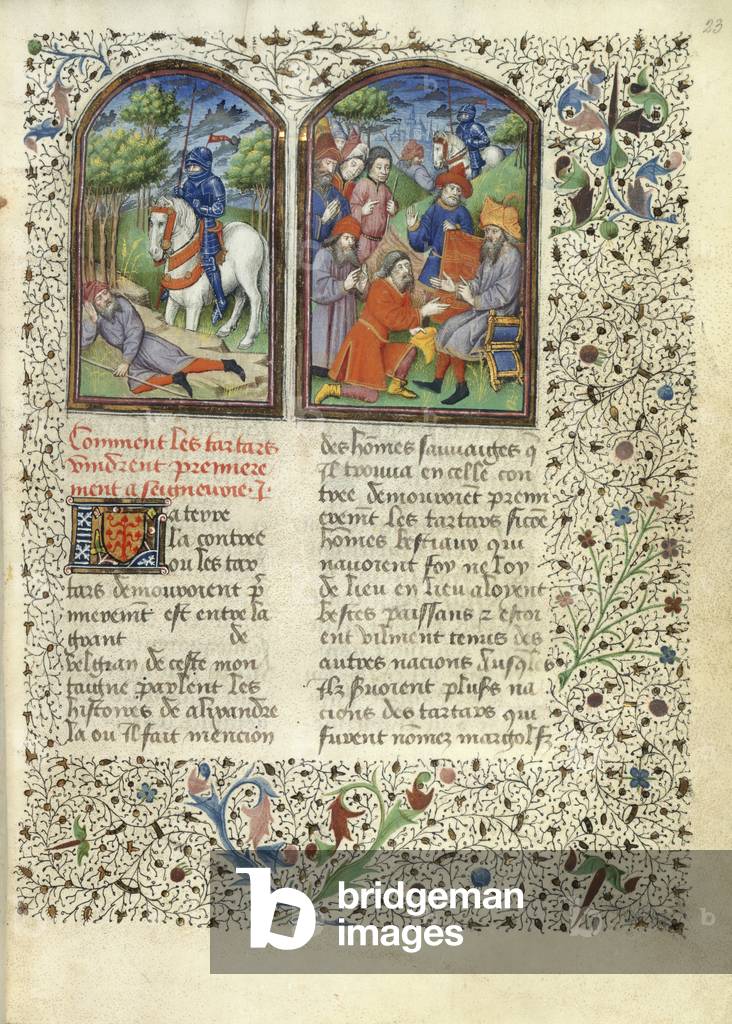 23
Comment les tartars
vindrent premiere
ment a seigneurie. J.
La terre
la contree
ou les tar
tars demouroient p̄
mierem̄t est entre la
grant de
belgran de ceste mon
taigne parlent les
histoires de alixandre
la ou il fait mencion
des hōmes sauuaiges q̄
Jl trouua en celle con
tree demouroiēt premi
erem̄t les tartars sicōe
hōmes bestiaux qui
nauoient foy ne loy
de lieu en lieu aloyent
bestes paissans ⁊ estoi
ent vilment tenus des
autres nacions
Jlz plusrs na
cions des tartars qui
furent nōmez
b
bridgeman
images